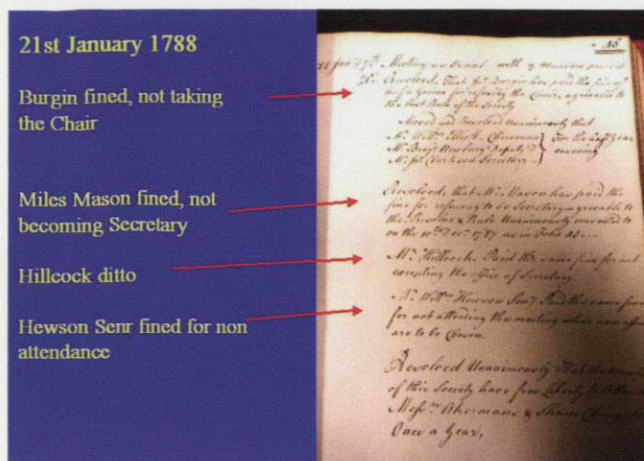 21st January 1788
Burgin fined, not taking
the Chair
Miles Mason fined, not
becoming Secretary
Hillcock ditto
Hewson Senr fined for non
attendance
Meeting as usual with 9 members present
Resolved, That Mr. Burgin has paid the fine of
half a Guinea for refusing the Chair, agreeable to
the Rule of the Society
Moved and Resolved Unanimously that
Mr. Willm. Chairman
Mr. Benjn. Newbury Deputy Do.
Mr. Secretary
For the Year
ensuing
Resolved, that Mr. Mason has paid the
fine for refusing to be Secretary agreeable to
the Resolve & Rule Unanimously consented to
on the 10th Decr. 1787 as in Folio
Mr. Hillcock Paid the same fine for not
accepting the office of Secretary
Mr. Willm. Hewson Senr. Paid the same fine
for not attending this meeting when new
are to be Chosen
Resolved Unanimously That the
of this Society have free Liberty to
Messrs. Akermans &
Once a Year,